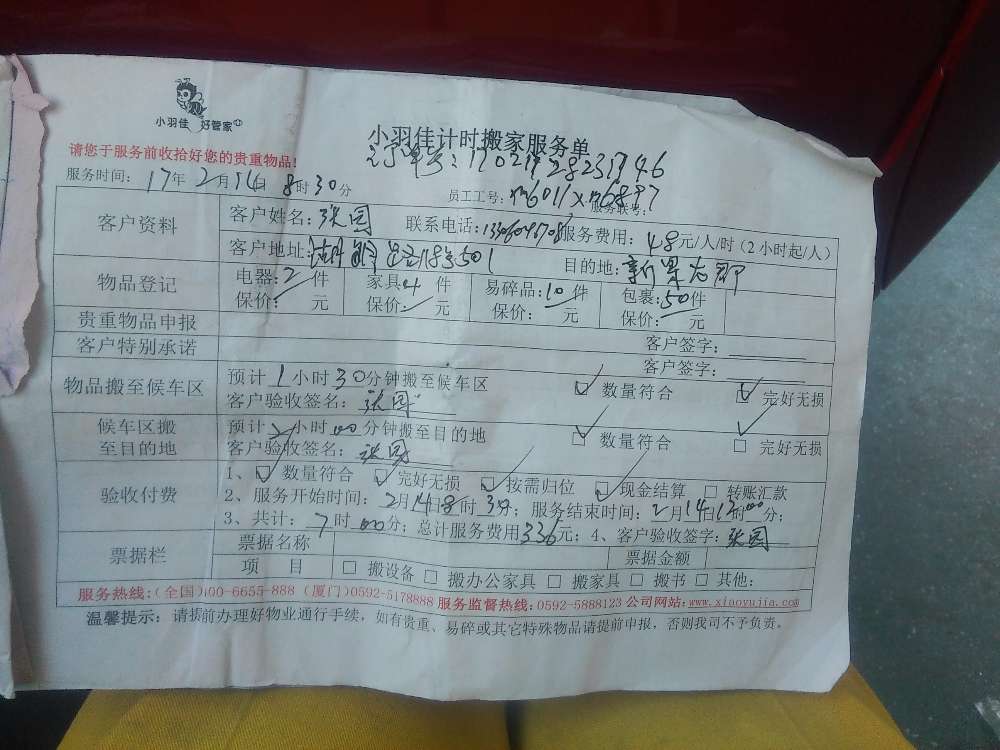 小羽佳 好管家
小羽佳计时搬家服务单
请您于服务前收拾好您的贵重物品!
服务时间: 17年 2月 14日 8时 30分
员工工号: 服务联号:
客户资料
客户姓名: 张园 联系电话: 服务费用: 48元/人/时 (2小时起/人)
客户地址: 目的地:
物品登记
电器: 2 件 家具 4 件 易碎品: 10 件 包裹: 50 件
保价: 元 保价: 元 保价: 元 保价: 元
贵重物品申报 客户签字:
客户特别承诺 客户签字:
物品搬至候车区
预计 1 小时 30 分钟搬至候车区 数量符合 完好无损
客户验收签名: 张园
候车区搬至目的地
预计 2 小时 00 分钟搬至目的地 数量符合 完好无损
客户验收签名: 张园
验收付费
1、 数量符合 完好无损 按需归位 现金结算 转账汇款
2、服务开始时间: 2月 14日 8时 3分; 服务结束时间: 2月 14日 时 00分;
3、共计: 7时 00分; 总计服务费用 336元; 4、客户验收签字: 张园
票据栏
票据名称 票据金额
项 目 搬设备 搬办公家具 搬家具 搬书 其他:
服务热线: (全国)00-6655-888 (厦门)0592-5178888 服务监督热线: 0592-5888123 公司网站: www.xiaoyujia.com
温馨提示: 请提前办理好物业通行手续, 如有贵重、易碎或其它特殊物品请提前申报, 否则我司不予负责。